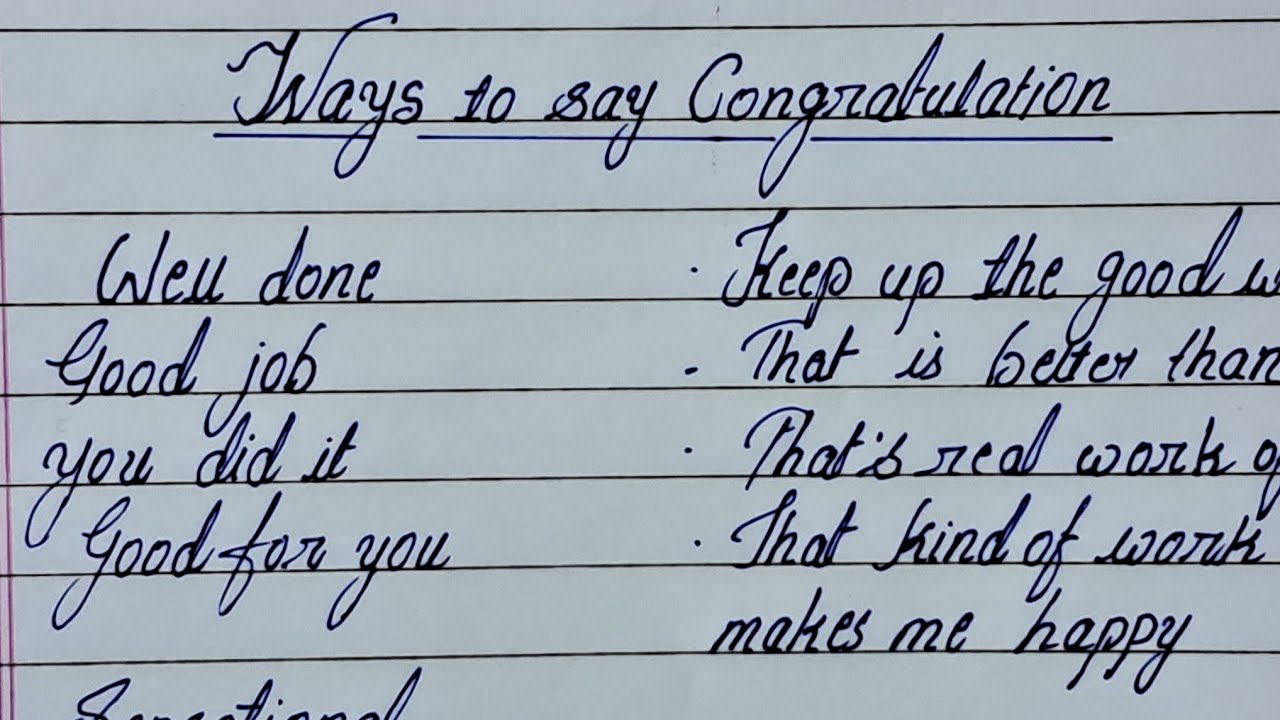 Ways to say Congratulation
Well done
Good job
you did it
Good for you
Sensational
· Keep up the good
- That is better than
· That's real work
· That kind of work
makes me happy